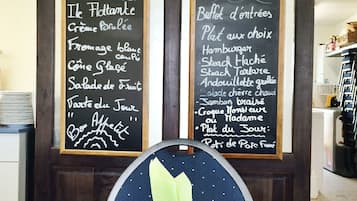 Ile Flottante
Crème Brulée
Fromage blanc
campé
Cône Glaçé
Salade de Fruit
Tarte du Jour
Bon Appétit
Buffet d'entrées
Plat aux choix
Hamburger
Steack Haché
Steack Tartare
Andouillette grillée
Salade chèvre chaud
Jambon braisé
Croque Monsieur
ou Madame
Plat du Jour:
Pots de Pore